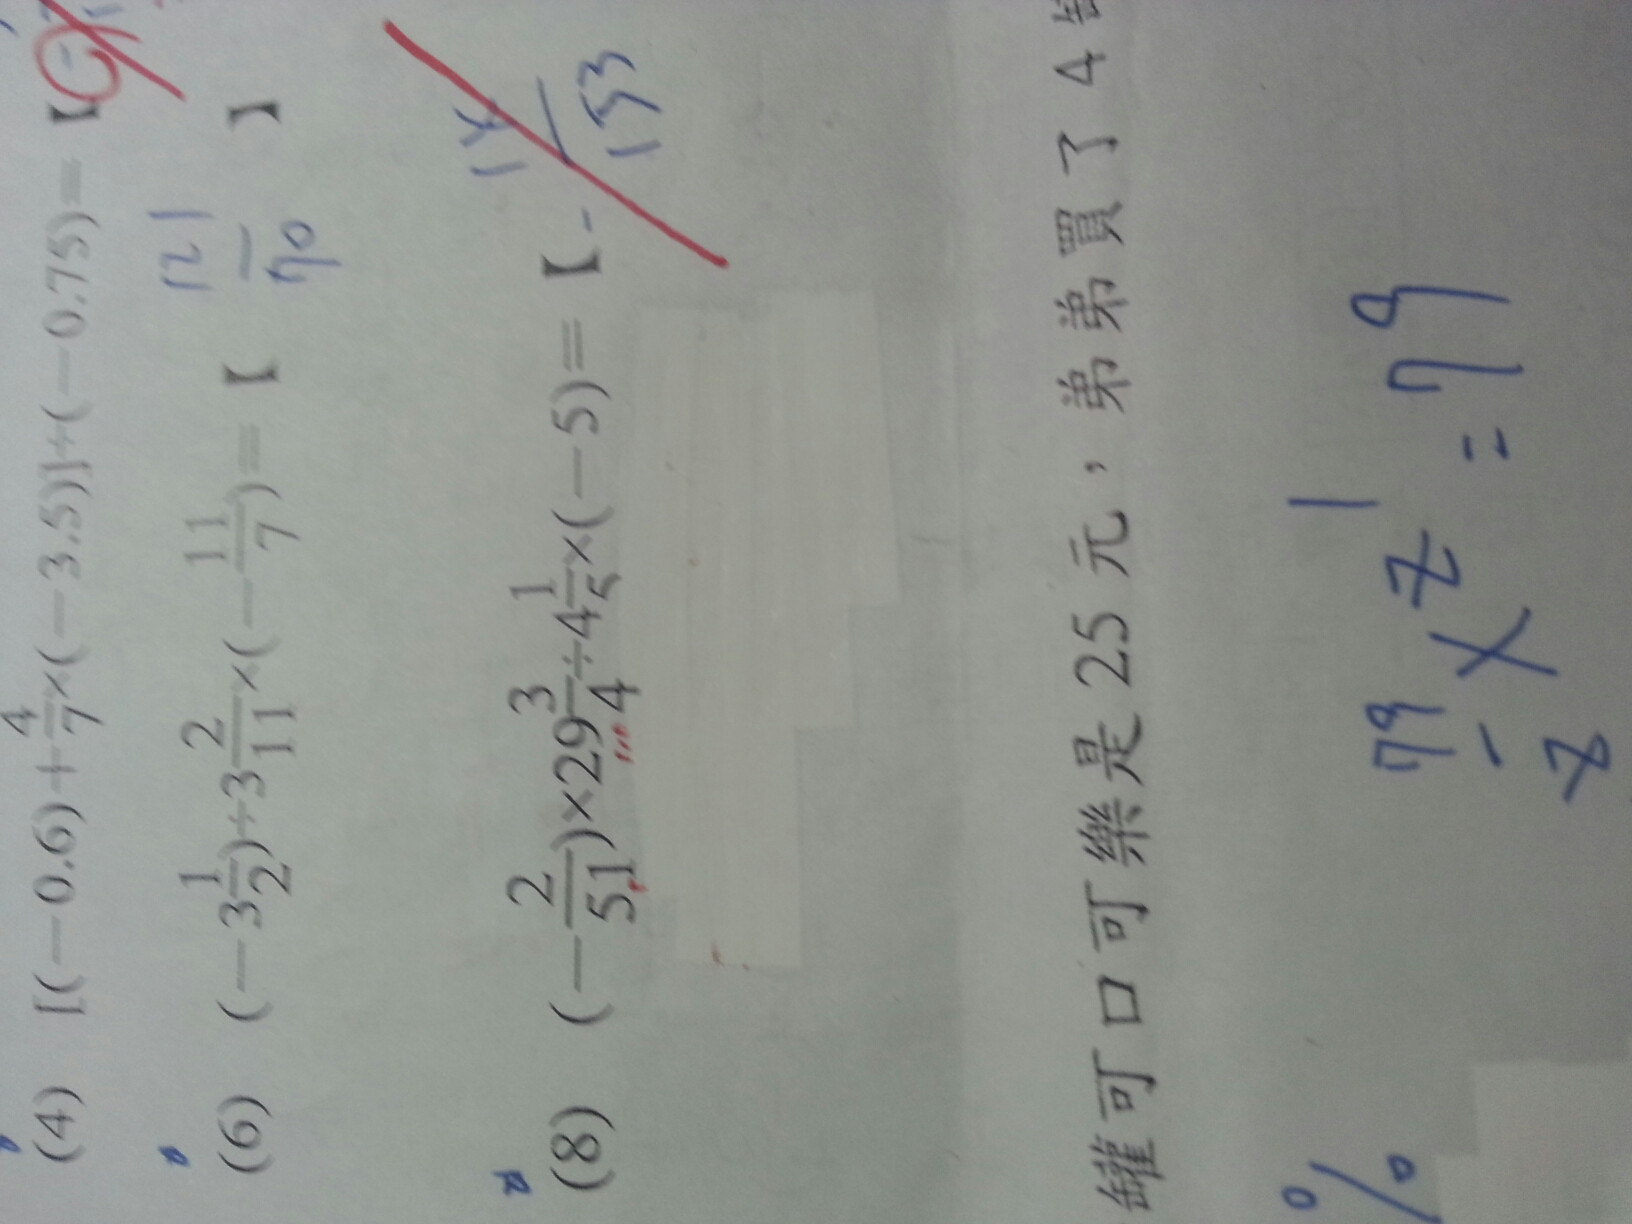 (4) [(－0.6)＋4/7×(－3.5)]÷(－0.75)＝【－
(6) (－3 1/2)÷3 2/11×(－11/7)＝【 121/70 】
(8) (－2/51)×29 3/4÷4 1/5×(－5)＝【－
罐可口可樂是 25 元，弟弟買了 4
79/2 × 2 1 = 79
%